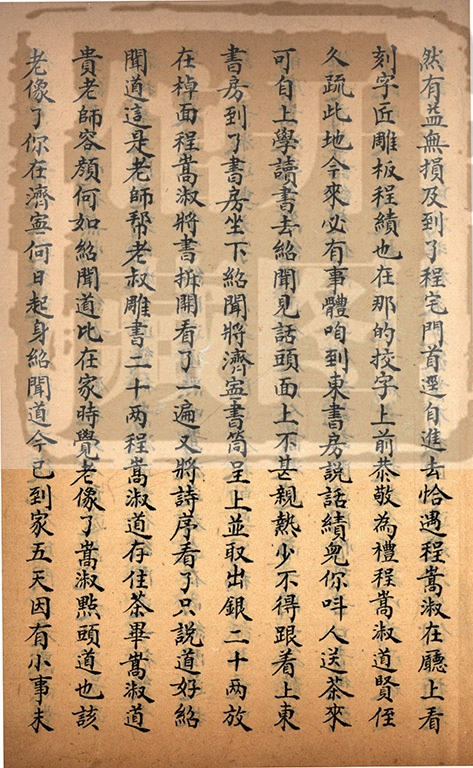 然有益無損及到了程宅門首逕自進去恰遇程嵩淑在廳上看
刻字匠雕板程績也在那的挍字上前恭敬為禮程嵩淑道賢侄
久疏此地今來必有事體咱到東書房說話績兒你呌人送茶來
可自上學讀書去紹聞見話頭面上不甚親熱少不得跟着上東
書房到了書房坐下紹聞將濟寍書筒呈上並取出銀二十两放
在棹面程嵩淑將書拆開看了一遍又將詩序看了只說道好紹
聞道這是老師帮老叔雕書二十两程嵩淑道存住茶畢嵩淑道
貴老師容顏何如紹聞道比在家時覺老像了嵩淑㸃頭道也該
老像了你在濟寍何日起身紹聞道今已到家五天因有小事未